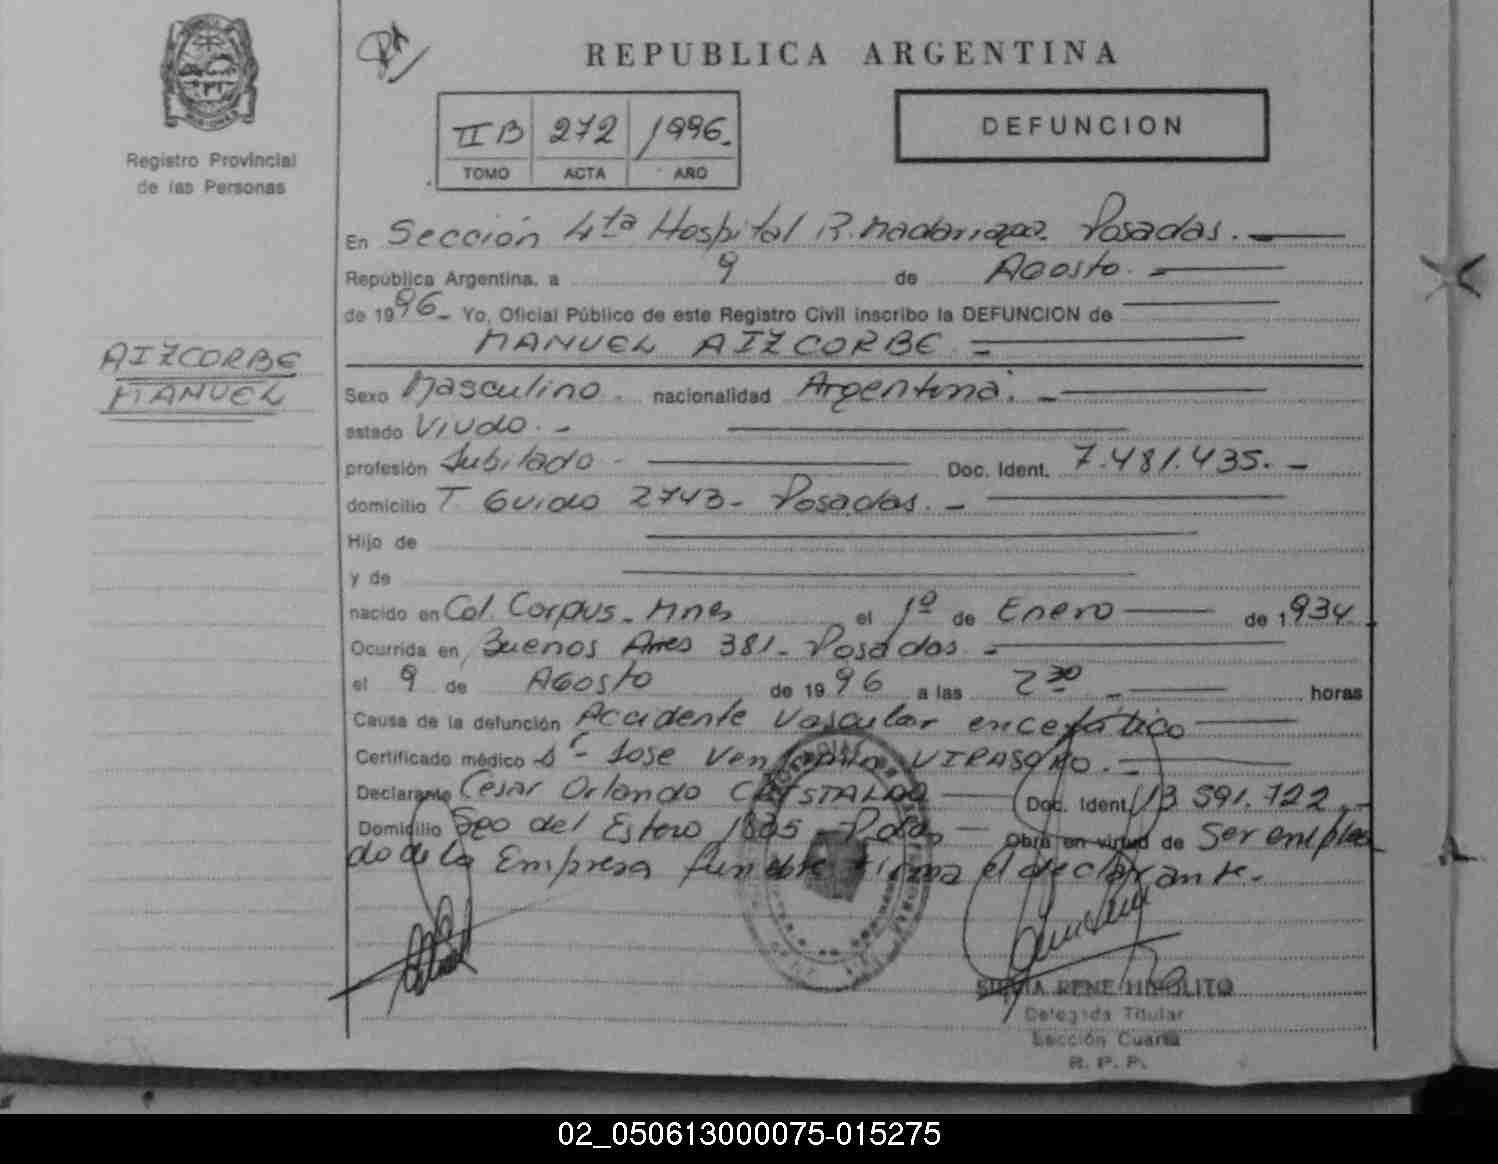 REPUBLICA ARGENTINA
IIB 272 1996.
TOMO ACTA AÑO
DEFUNCION
Registro Provincial
de las Personas
AIZCORBE
MANUEL
En Sección 4ta Hospital R. Madariaga. Posadas.
República Argentina, a 9 de Agosto.
de 1996 Yo, Oficial Público de este Registro Civil inscribo la DEFUNCION de
MANUEL AIZCORBE.
Sexo Masculino. nacionalidad Argentina.
estado Viudo.
profesión Jubilado Doc. Ident. 7.481.435.
domicilio T. Guido 2743- Posadas.
Hijo de
y de
nacido en Col. Corpus. Mnes el 1º de Enero de 1934
Ocurrida en Buenos Aires 381- Posadas.
el 9 de Agosto de 1996 a las 2 30 horas
Causa de la defunción Accidente vascular encefálico
Certificado médico Jose VIRASORO.
Declarante Cesar Orlando CRISTALDO Doc. Ident. 13 591.722
Domicilio Sgo del Estero Obra en virtud de Ser emplea
do de la Empresa funebre firma el declarante.
SILVIA RENE HIPOLITO
Delegada Titular
Sección Cuarta
R. P. P.
02_050613000075-015275